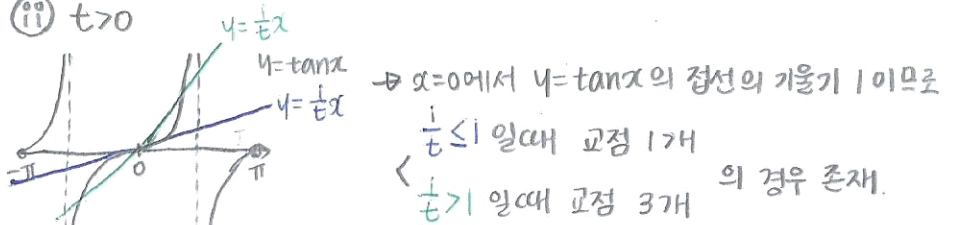 (ii) t>0
y=1/t x
y=tanx
y=1/t x
-π
0
π
→ x=0에서 y=tanx의 접선의 기울기 1이므로
1/t ≤1 일때 교점 1개
1/t >1 일때 교점 3개
의 경우 존재.